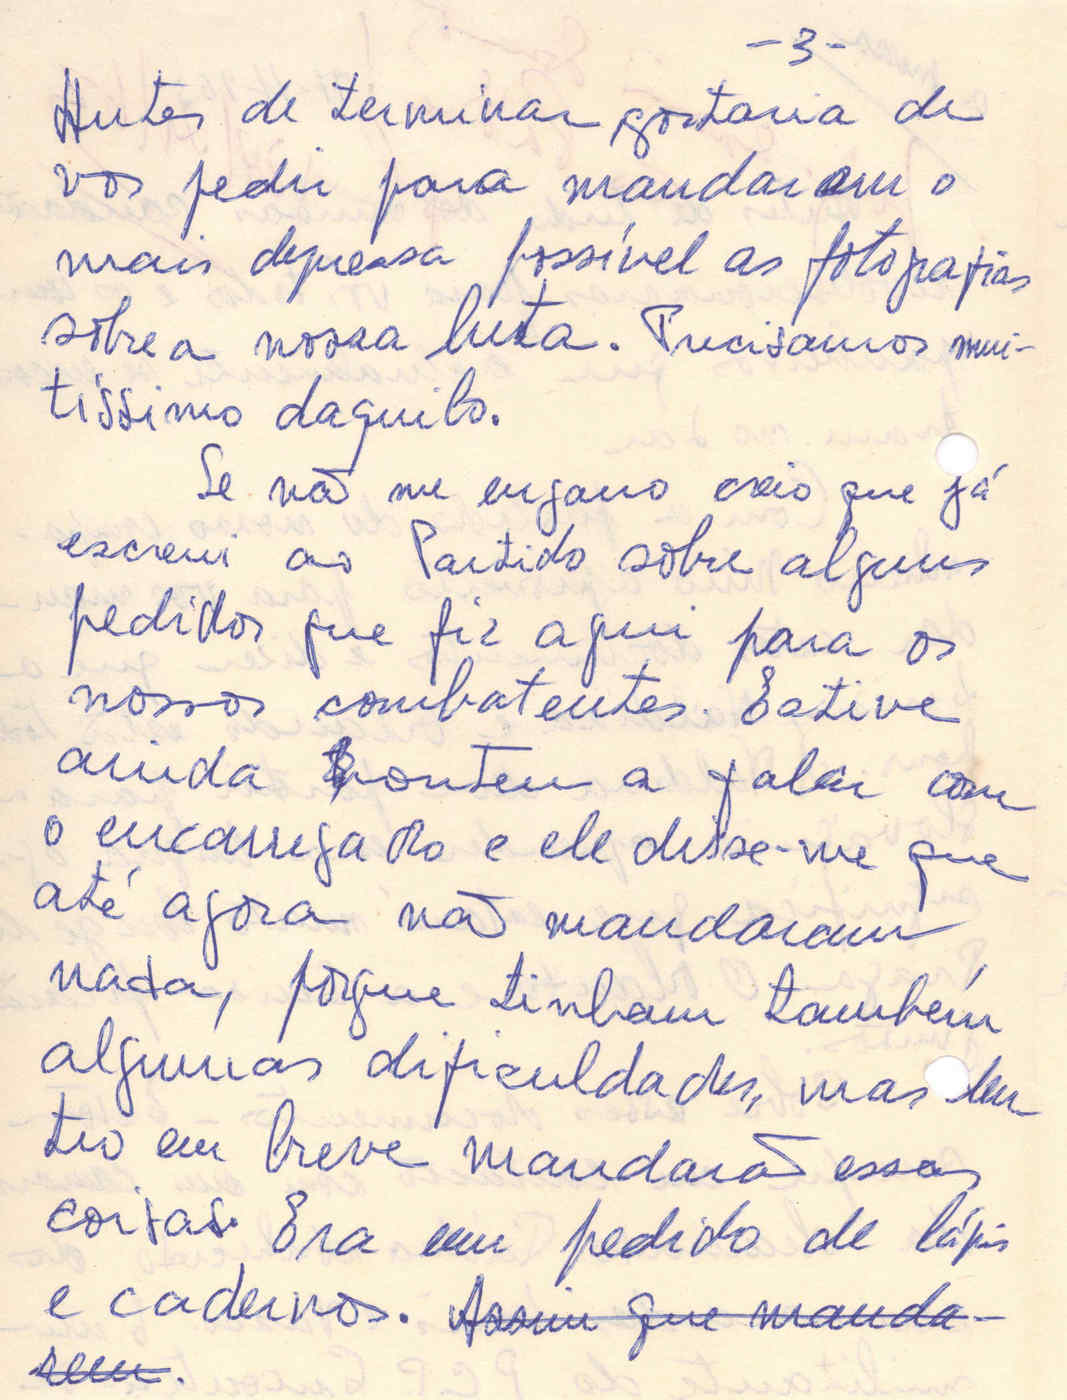 -3-
Antes de terminar gostaria de
vos pedir para mandarem o
mais depressa possível as fotografias
sôbre a nossa luta. Precisamos mui-
tíssimo daquilo.
Se não me engano creio que já
escrevi ao Partido sôbre alguns
pedidos que fiz aqui para os
nossos combatentes. Estive
ainda hontem a falar com
o encarregado e ele disse-me que
até agora não mandaram
nada, porque tinham também
algumas dificuldades, mas den
tro em breve mandarão essas
coisas. Era um pedido de lápis
e cadernos. Assim que manda-
rem.